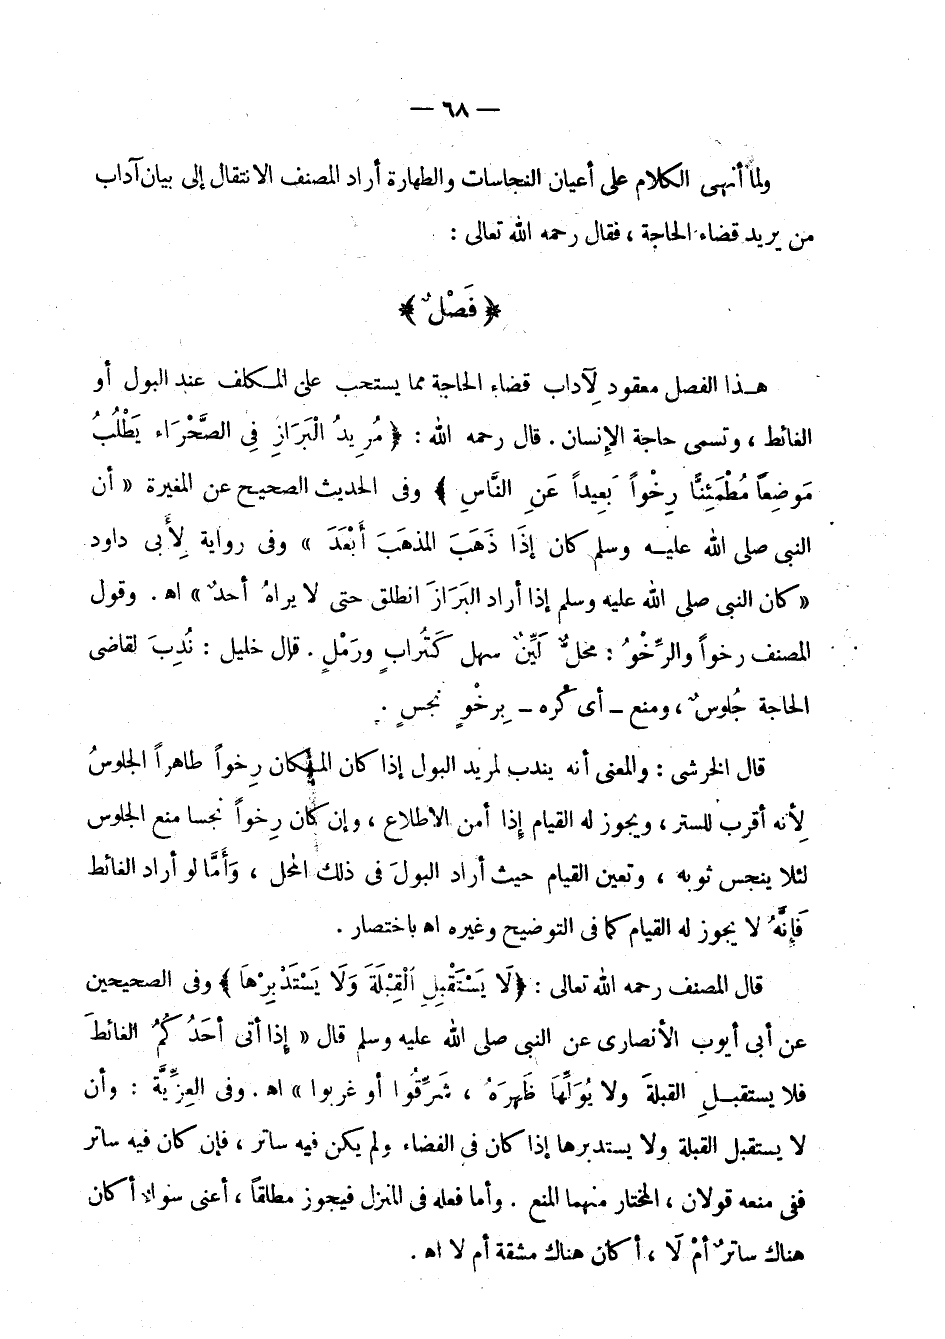 — ٦٨ —
ولما أنهى الكلام على أعيان النجاسات والطهارة أراد المصنف الانتقال إلى بيان آداب
من يريد قضاء الحاجة ، فقال رحمه الله تعالى :
﴿ فَصْلٌ ﴾
هـذا الفصل معقود لآداب قضاء الحاجة مما يستحب على المـكلف عند البول أو
الغائط ، وتسمى حاجة الإنسان . قال رحمه الله : ﴿ مُرِيدُ الْبَرَازِ فِي الصَّحْرَاءِ يَطْلُبُ
مَوضِعاً مُطْمَئِنًّا رِخْواً بَعِيداً عَنِ النَّاسِ ﴾ وفى الحديث الصحيح عن المغيرة « أن
النبى صلى الله عليـه وسلم كان إذَا ذَهَبَ المذهَبَ أَبْعَدَ » وفى رواية لِأَبى داود
« كان النبى صلى الله عليه وسلم إذا أراد البَرَازَ انطلق حتى لا يراهُ أحدٌ » اه . وقول
المصنف رخواً والرِّخْوُ : محلٌّ لَيِّنٌ سهل كَتُرابٍ ورَمْلٍ . قال خليل : نُدِبَ لقاضى
الحاجة جُلوسٌ ، ومنع ــ أى كُره ــ بِرخْوٍ نجسٍ .
قال الخرشى : والمعنى أنه يندب لمريد البول إذا كان المـكان رِخواً طاهراً الجلوسُ
لِأنه أقرب للستر ، ويجوز له القيام إذا أمن الاطلاع ، وإن كان رِخواً نجسا منع الجلوس
لئلا ينجس ثوبه ، وتعين القيام حيث أراد البولَ فى ذلك المحل ، وَأَمَّا لو أراد الغائط
فَإِنَّهُ لا يجوز له القيام كما فى التوضيح وغيره اه باختصار .
قال المصنف رحمه الله تعالى : ﴿ لَا يَسْتَقْبِلِ الْقِبْلَةَ وَلَا يَسْتَدْبِرْهَا ﴾ وفى الصحيحين
عن أبى أيوب الأنصارى عن النبى صلى الله عليه وسلم قال « إِذا أتى أحَدُكُمُ الغائطَ
فلا يستقبـلِ القبلةَ ولا يُوَلِّهَا ظَهرَهُ ، شَرِّقُوا أو غربوا » اه . وفى العِزِّيَّة : وأن
لا يستقبل القبلة ولا يستدبرها إذا كان فى الفضاء ولم يكن فيه ساتر ، فإن كان فيه ساتر
ففى منعه قولان ، المختار منهما المنع . وأما فعله فى المنزل فيجوز مطلقاً ، أعنى سواء أكان
هناك ساترٌ أمْ لَا ، أكان هناك مشقة أم لا اه .